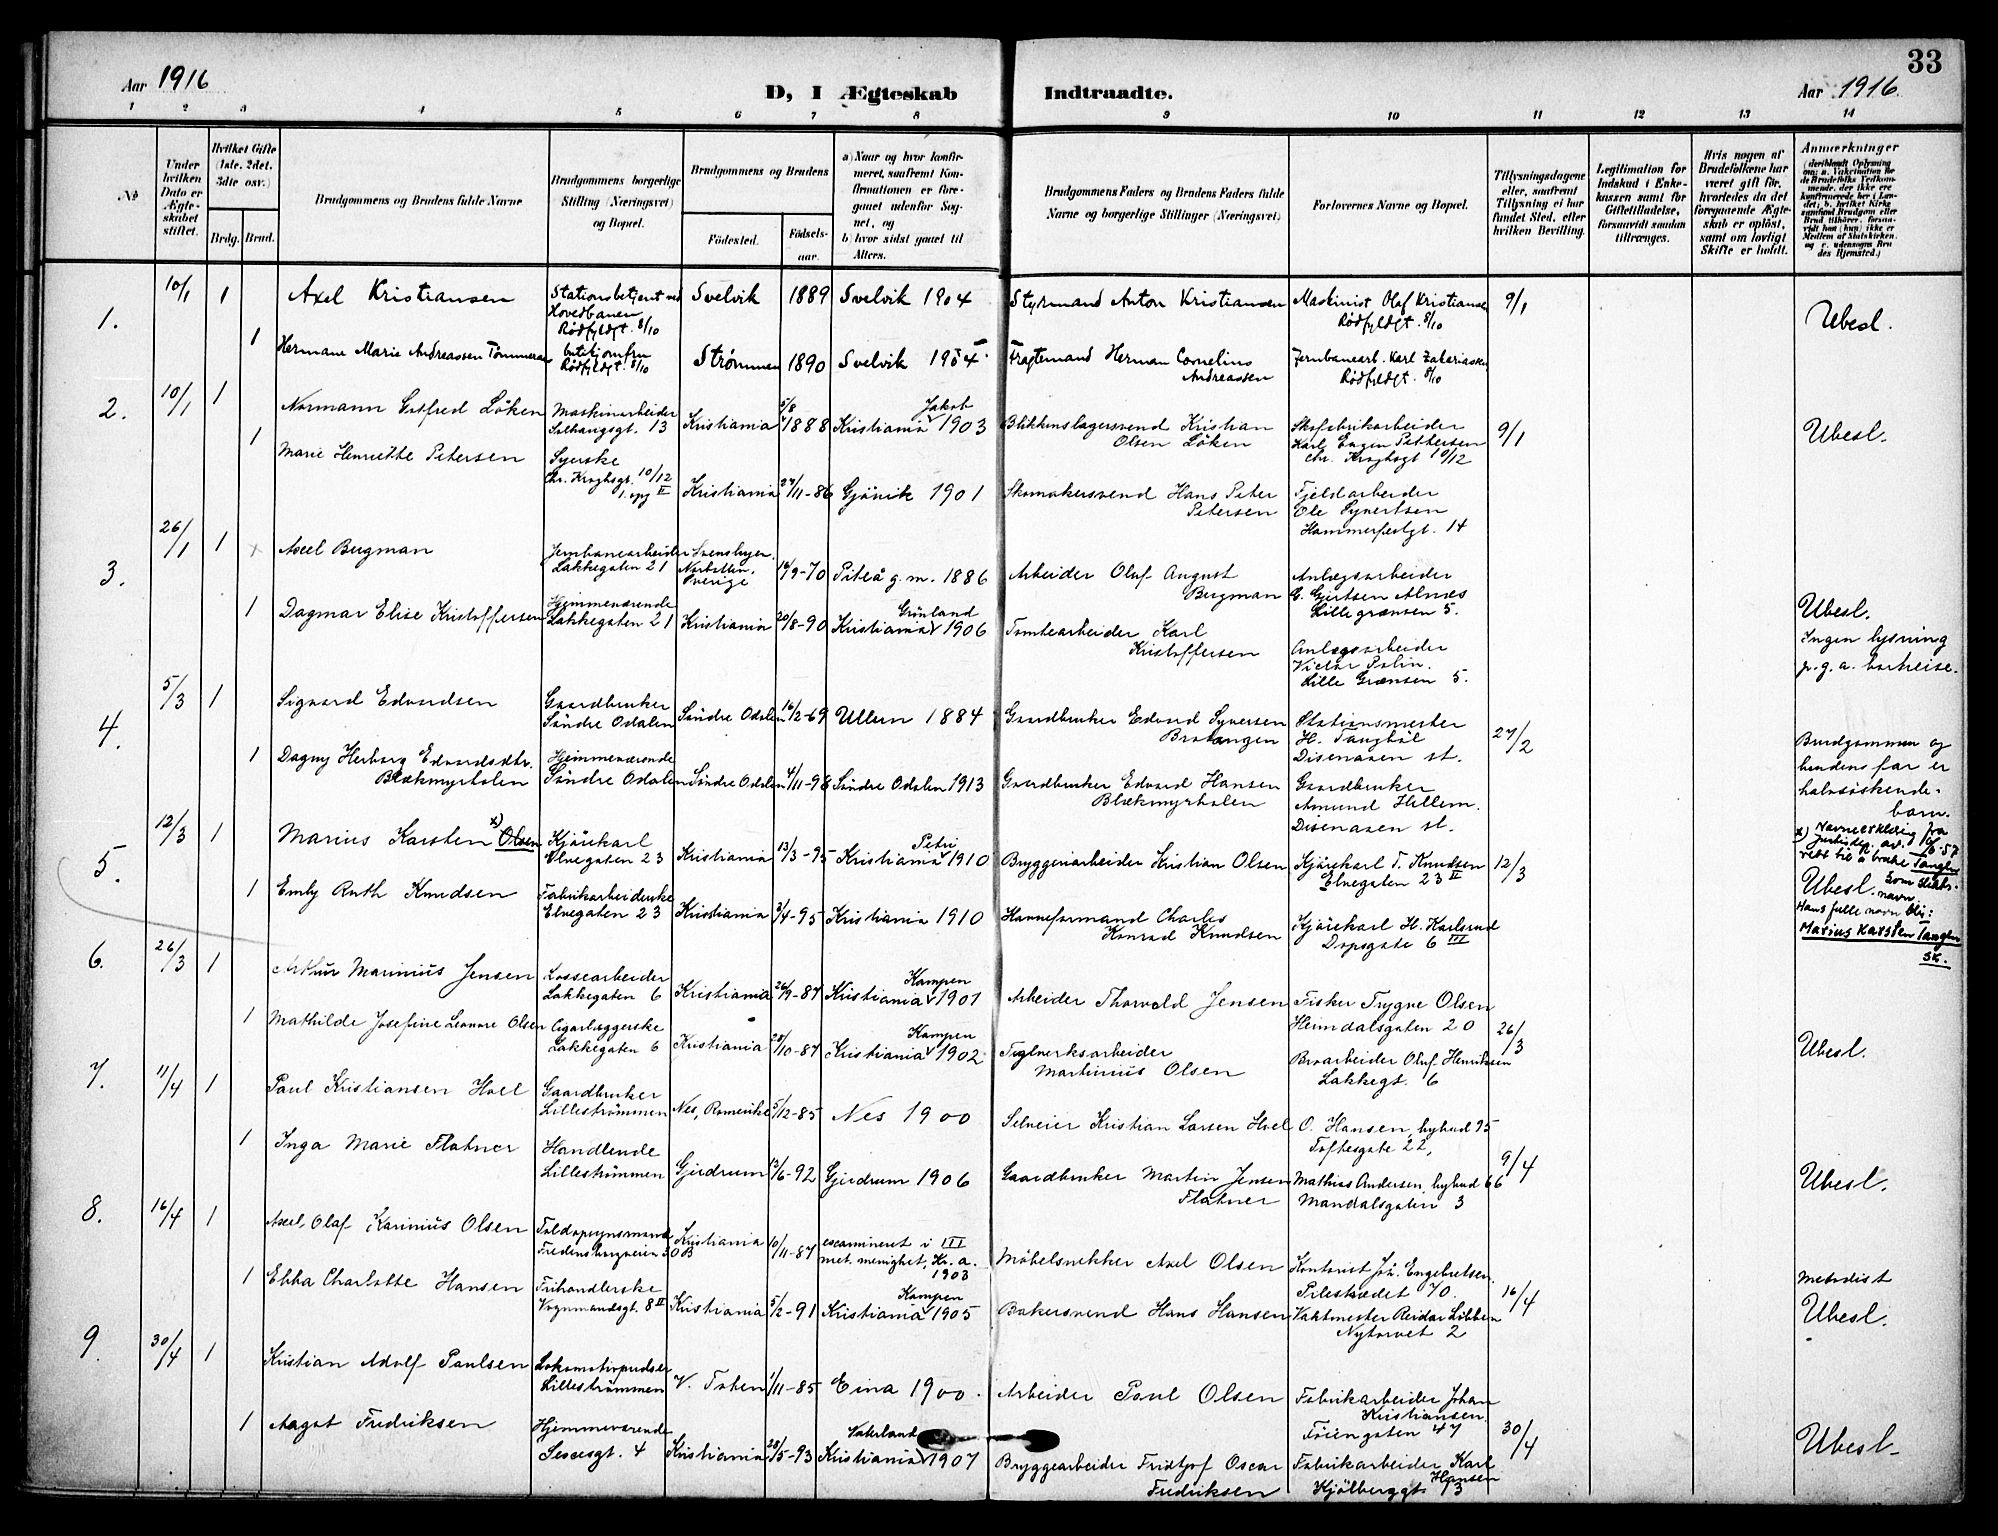 33
Aar 1916
D, I Ægteskab
Indtraadte.
Aar 1916.
1 2 3 4 5 6 7 8 9 10 11 12 13 14
No
Under hvilken Dato er Ægteskabet stiftet.
Hvilket Gifte (1ste, 2det, 3dte osv.)
Brdg. Brud.
Brudgommens og Brudens fulde Navne
Brudgommens borgerlige Stilling (Næringsvei) og Bopæl.
Brudgommens og Brudens
Fødested.
Fødselsaar.
a) Naar og hvor konfirmeret, saafremt Konfirmationen er foregaaet udenfor Sognet, og
b) hvor sidst gaaet til Alters.
Brudgommens Faders og Brudens Faders fulde Navne og borgerlige Stillinger (Næringsvei)
Forlovernes Navne og Bopæl.
Tillysningsdagene eller, saafremt Tillysning ei har fundet Sted, efter hvilken Bevilling.
Legitimation for Indskud i Enkekassen samt for Giftetilladelse, forsaavidt saadan tiltrænges.
Hvis nogen af Brudefolkene har været gift før, hvorledes da det foregaaende Ægteskab er opløst, samt om lovligt Skifte er holdt.
Anmærkninger
(deriblandt Oplysning om: a. Vakcination for de Brudefolks Vedkommende, der ikke ere konfirmerede her i Landet; b. hvilket Kirkesamfund Brudgom eller Brud tilhører, forsaavidt han (hun) ikke er Medlem af Statskirken, og c. udensogns Brudes Hjemsted.)
1. 10/1 1 Axel Kristiansen Stationsbetjent ved Hovedbanen Rødfyldgt. 8/10 Svelvik 1889 Svelvik 1904 Styrmand Anton Kristiansen Maskinist Olaf Kristiansen Rødfyldgt. 8/10 9/1 Ubesl.
1 Hermane Marie Andreassen Tømmeraas Rødfyldgt. 8/10 Strømmen 1890 Svelvik Fragtemand Herman Cornelius Andreassen Jernbanearb. Karl Zakariassen Rødfyldgt. 8/10
2. 10/1 1 Normann Gotfred Löken Maskinarbeider Solhaugsgt. 13 Kristiania 5/8 1888 Jakob Kristiania 1903 Blikkenslagersvend Kristian Olsen Löken Skofabrikarbeider Karl Eugen Pettersen Chr. Kroghsgt 10/12 9/1 Ubesl.
1 Marie Henriette Petersen Syerske Chr. Kroghsgt. 10/12 Kristiania 27/11-86 Gjövik 1901 Skomakersvend Hans Peter Petersen Fjeldarbeider Ole Syvertsen Hammerfestgt. 14
3. 26/1 1 Axel Bergman Jernbanearbeider Lakkegaten 21 Norbotten, Sverige 16/9-70 Piteå g.m. 1886 Arbeider Oluf August Bergman Anlægsarbeider G. Gjertsen Alnæs Lille grænsen 5.
1 Dagmar Elise Kristoffersen Hjemmeværende Lakkegaten 21 Kristiania 20/8-90 Grönland Kristiania 1906 Tomtearbeider Karl Kristoffersen Anlægsarbeider Victor Palin. Lille Grænsen 5. Ubesl. Ingen lysning p.g.a. bortreise.
4. 5/3 1 Sigvard Edvardsen Gaardbruker Söndre Odalen Söndre Odalen 16/2-69 Ullern 1884 Gaardbruker Edvard Syversen Bratangen Stationsmester H. Tangböl Disenaaen st. 27/2
1 Dagny Herborg Edvardsdtr. Blækmyrholen Hjemmeværende Söndre Odalen Söndre Odalen 4/11-98 Söndre Odalen 1913 Gaardbruker Edvard Hansen Blækmyrholen Gaardbruker Amund Hellem. Disenaaen st. Brudgommen og brudens far er halvsöskende-barn.
5. 12/3 1 Marius Karsten x) Olsen Kjörekarl Elvegaten 23 Kristiania 13/3-95 Petri Kristiania 1910 Bryggeriarbeider Kristian Olsen Kjörekarl T. Knudsen Elvegaten 23 II 12/3
x) Navneerklæring fra Justisdep. av 10/6 57 rett til å bruke Tangen som slektsnavn. Hans fulle navn blir: Marius Karsten Tangen
1 Emly Ruth Knudsen Fabrikarbeiderske Elvegaten 23 Kristiania 3/4-95 Kristiania 1910 Havneformand Charles Konrad Knudsen Kjörekarl H. Karlsrud Dopsgate 6 III Ubesl.
6. 26/3 1 Arthur Marinius Jensen Lossearbeider Lakkegaten 6 Kristiania 26/9-87 Kampen Kristiania 1901 Arbeider Thorvald Jensen Fisker Trygve Olsen Heimdalsgaten 20 26/3
1 Mathilde Josefine Leonore Olsen Cigarlæggerske Lakkegaten 6 Kristiania 28/10-87 Kampen Kristiania 1902 Teglverksarbeider Martinius Olsen Broarbeider Oluf Henriksen Lakkegt. 6 Ubesl.
7. 11/4 1 Paul Kristiansen Hvel Gaardbruker Lilleströmmen Nes, Romerike 5/12-85 Nes 1900 Selveier Kristian Larsen Hvel O. Hansen, bybud 95 Toftesgate 22, 9/4
1 Inga Marie Flatner Handlende Lilleströmmen Gjerdrum 13/6-92 Gjerdrum 1906 Gaardbruker Martin Jensen Flatner Mathias Andersen, bybud 66 Mandalsgaten 3 Ubesl.
8. 16/4 1 Axel Olaf Karinius Olsen Toldopsynsmand Fredensborgveien 30 B Kristiania 10/11-87 examineret i III met. menighet, Kr.a. 1903 Möbelsnekker Axel Olsen Kontorist Joh. Engebretsen. Pilestrædet 70. 16/4 Metodist
1 Ebba Charlotte Hansen Frihandlerske Vognmandsgt. 8 II Kristiania 5/2-91 Kampen Kristiania 1905 Bakersvend Hans Hansen Vaktmester Reidar Libben Nytorvet 2 Ubesl.
9. 30/4 1 Kristian Adolf Paulsen Lokomotivpudser Lilleströmmen V. Toten 1/11-85 Eina 1900. Arbeider Paul Olsen Fabrikarbeider Johan Kristiansen. Töiengaten 47 30/4
1 Aagot Fredriksen Hjemmeværende Kristiania 28/5-93 Vaterland Kristiania 1907 Bryggearbeider Fridtjof Oscar Fredriksen Fabrikarbeider Karl Hansen Kjölberggt. 13 Ubesl.